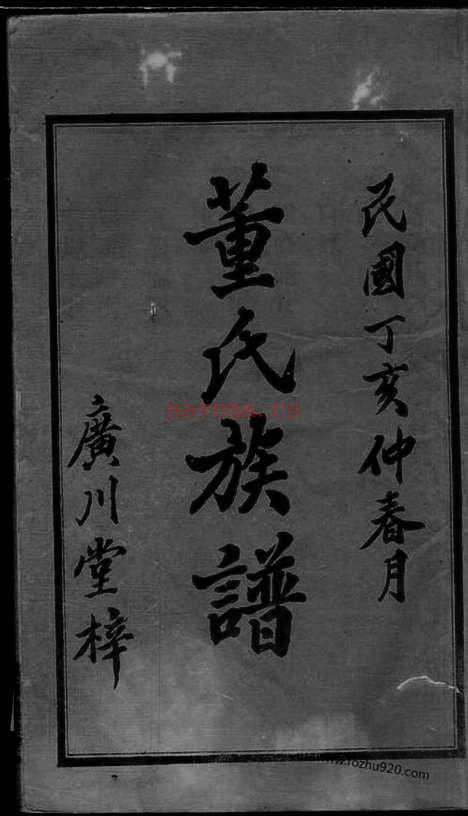 民國丁亥仲春月
董氏族譜
廣川堂梓
nayona.cn
www.rozhu920.com